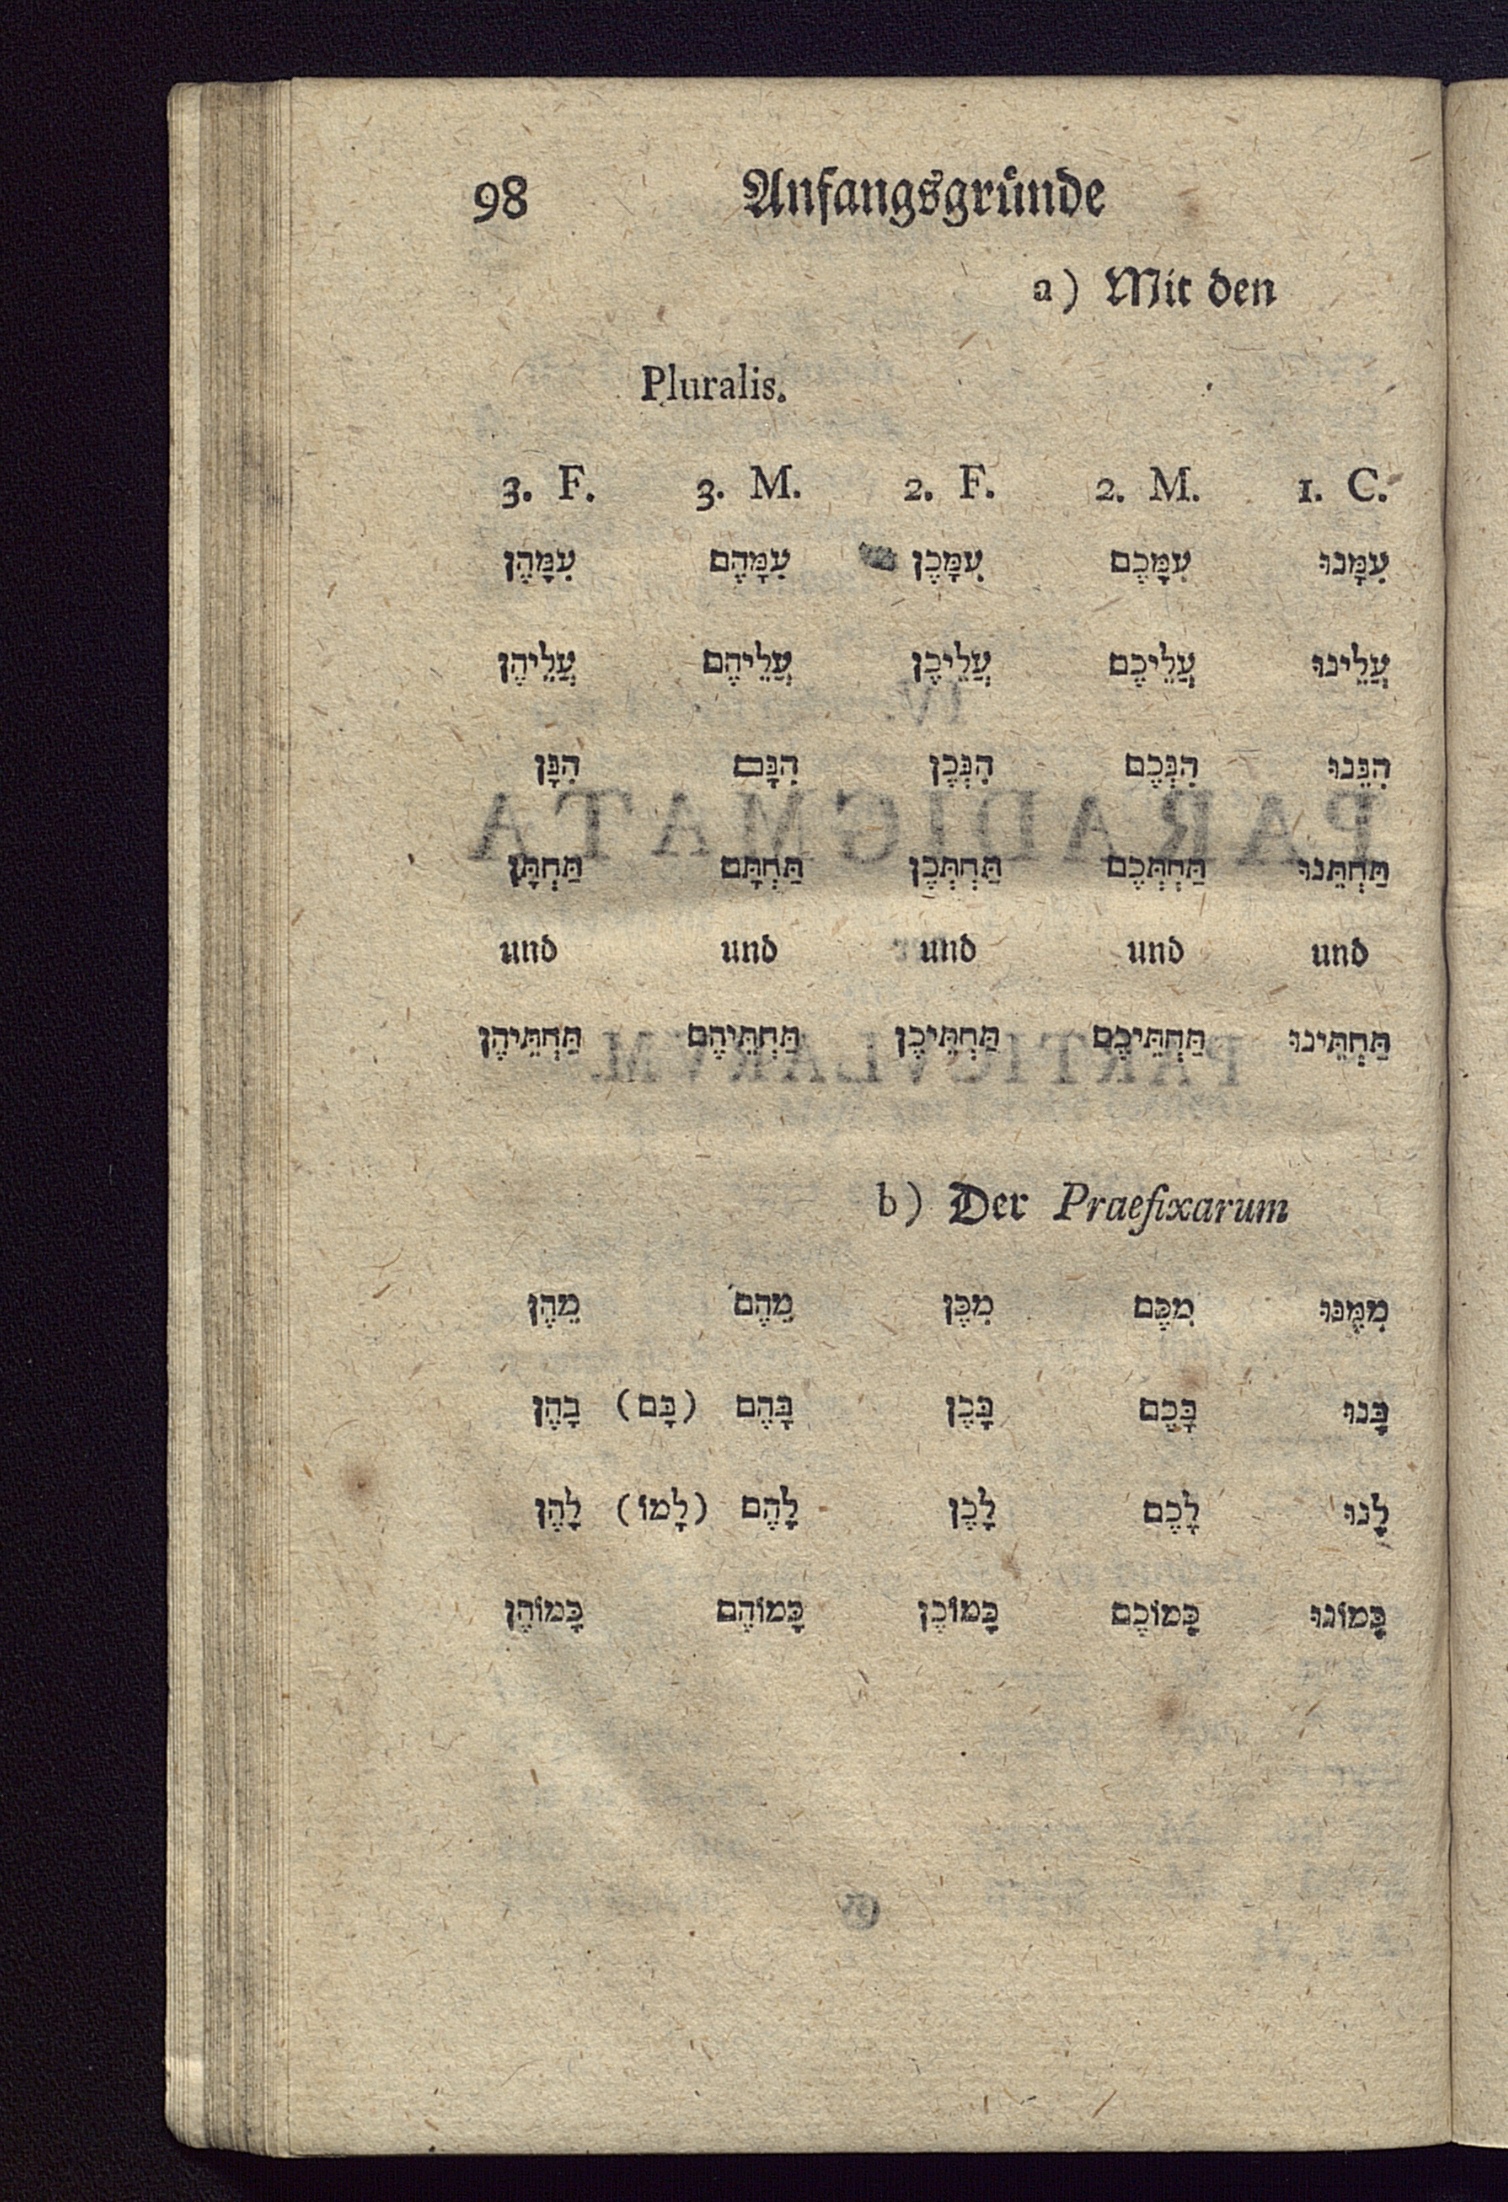 98 Anfangsgründe
a) Mit den
Pluralis.
3. F. 3. M. 2. F. 2. M. 1. C.
עִמָּהֶן עִמָּהֶם עִמָּכֶן עִמָּכֶם עִמָּנוּ
עֲלֵיהֶן עֲלֵיהֶם עֲלֵיכֶן עֲלֵיכֶם עֲלֵינוּ
הִנָּן הִנָּם הִנְּכֶן הִנְּכֶם הִנֵּנוּ
תַּחְתָּן תַּחְתָּם תַּחְתְּכֶן תַּחְתְּכֶם תַּחְתֵּנוּ
und und und und und
תַּחְתֵּיהֶן תַּחְתֵּיהֶם תַּחְתֵּיכֶן תַּחְתֵּיכֶם תַּחְתֵּינוּ
b) Der Praefixarum
מֵהֶן מֵהֶם מִכֶּן מִכֶּם מִמֶּנּוּ
בָּהֶן (בָּם) בָּהֶם בָּכֶן בָּכֶם בָּנוּ
לָהֶן (לָמוֹ) לָהֶם לָכֶן לָכֶם לָנוּ
כָּמוֹהֶן כָּמוֹהֶם כָּמוֹכֶן כָּמוֹכֶם כָּמוֹנוּ